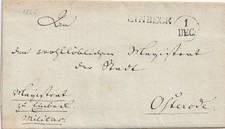 1866
EINBECK
1
DEC.
An
den wohllöblichen Magistrat
der Stadt
Osterode.
Magistrat
zu Einbeck
Militar.